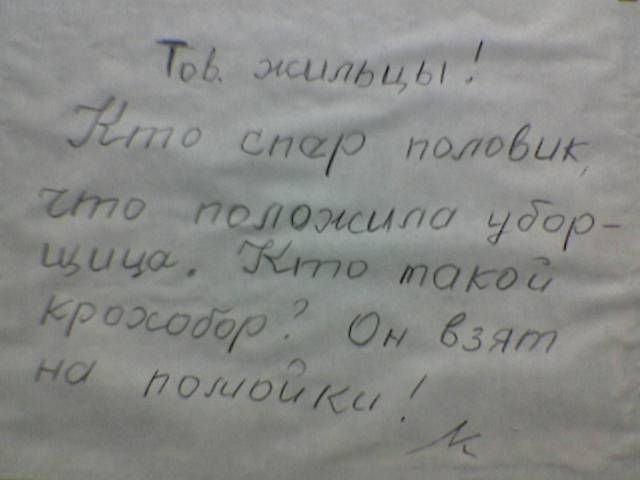 Тов. жильцы!
Кто спар половик,
что положила убор-
щица. Кто такой
крохобор? Он взят
на помойки!